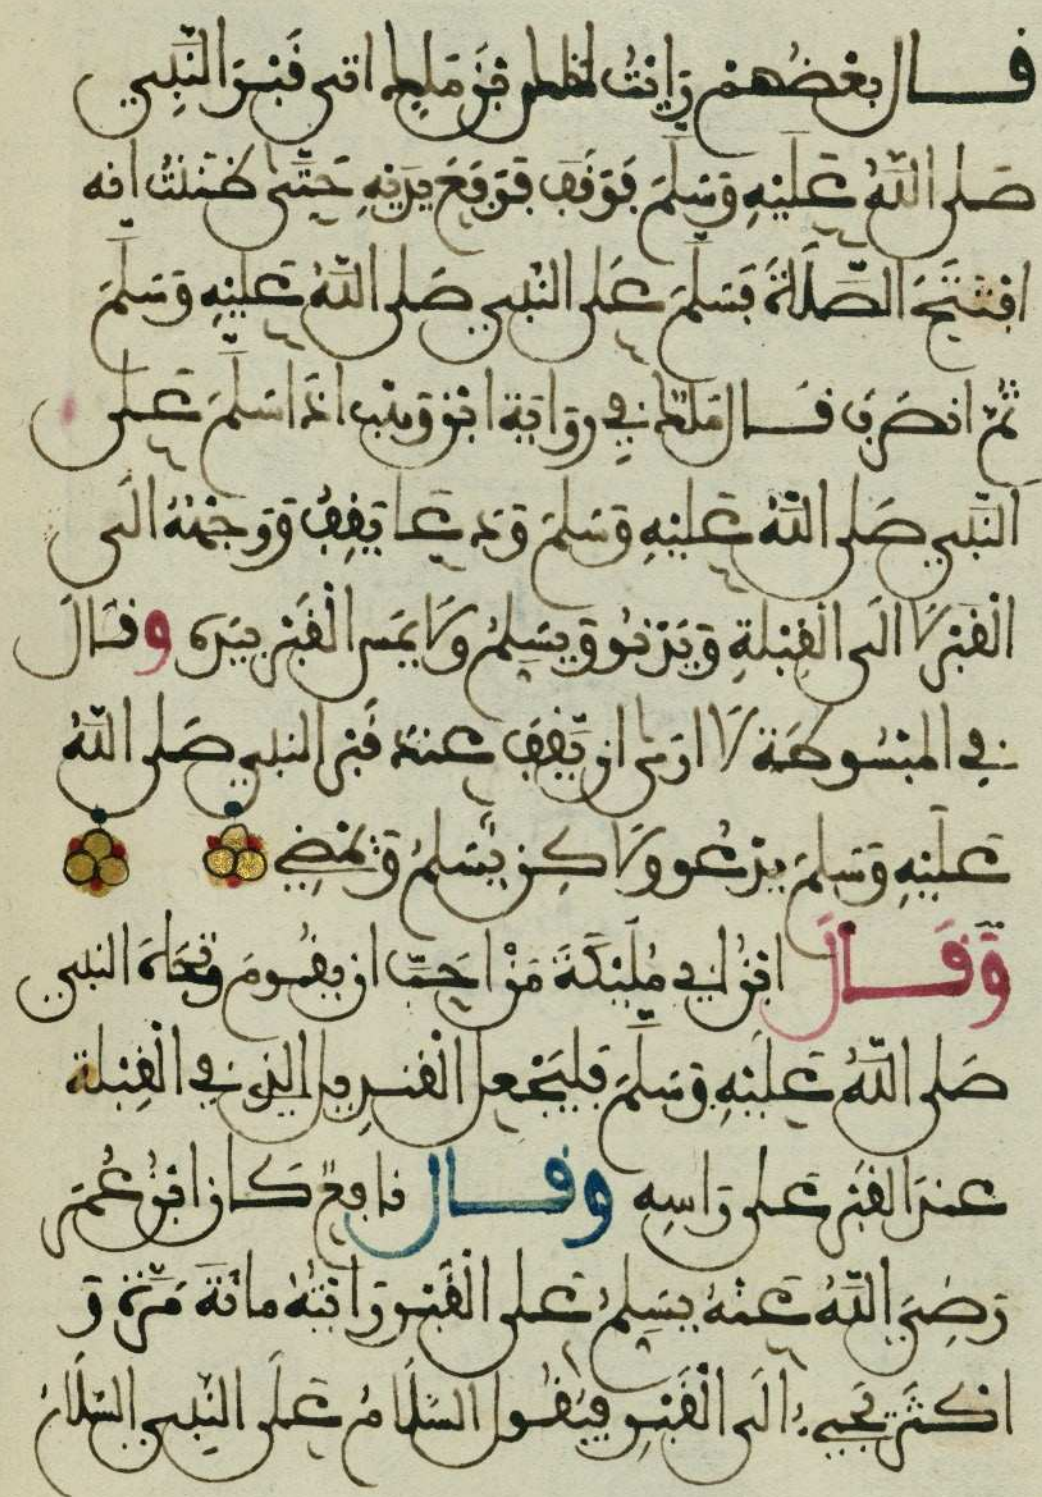 قال بعضهم رَأيْتُ انس بن مَلِك اتى قَبْرَ النَّبِي
صَلى اللهُ عَلَيْهِ وَسَلمَ فَوَقَفَ فَرَفَعَ يَدَيْهِ حَتَّى ظَنَنْتُ انه
افْتَتَحَ الصَّلَاةَ فَسَلمَ عَلى النَّبِي صَلى اللهُ عَلَيْهِ وَسَلمَ
ثُمَّ انصَرَفَ قَال مَلِكٌ فِي رِوَايَةِ ابْنِ وَهْب اذَا سَلمَ عَلى
النَّبِي صَلى اللهُ عَلَيْهِ وَسَلمَ وَدَعَا يَقِفُ وَوَجْهُهُ الَى
الْقَبْرِ لَا الَى الْقِبْلَةِ وَيَدْنُو وَيُسَلِمُ وَلَا يَمَس الْقَبْرَ بِيَدِهِ وقَالَ
فِي الْمَبْسُوطَة لَا ارَى ان يَّقِفَ عِنْدَ قَبْرِ النبي صَلى اللهُ
عَلَيْهِ وَسَلمَ يَدْعُو ولَاكِن يُّسَلمُ وَيَمْضِي
وَّقَالَ ابْنُ ابِي مُلَيْكَةَ مَنْ احَبَّ ان يَقُومَ وِجَاهَ النبي
صَلى اللهُ عَلَيْهِ وَسَلمَ فَلْيَجْعَل الْقنديل الذي فِي الْقِبْلَة
عِنْدَ الْقَبْرِ عَلى رَاسِهِ وقال نافِعٌ كَانَ ابْنُ عُمَرَ
رَضِيَ اللهُ عَنْهُ يُسَلِمُ عَلى الْقَبْرِ رَأيْتُهُ مائَةَ مَرَّةٍ وَ
اكْثَرَ يَجِيءُ الَى الْقَبْرِ فَيَقُول السَّلَامُ عَلَى النَّبِي السَّلَامُ